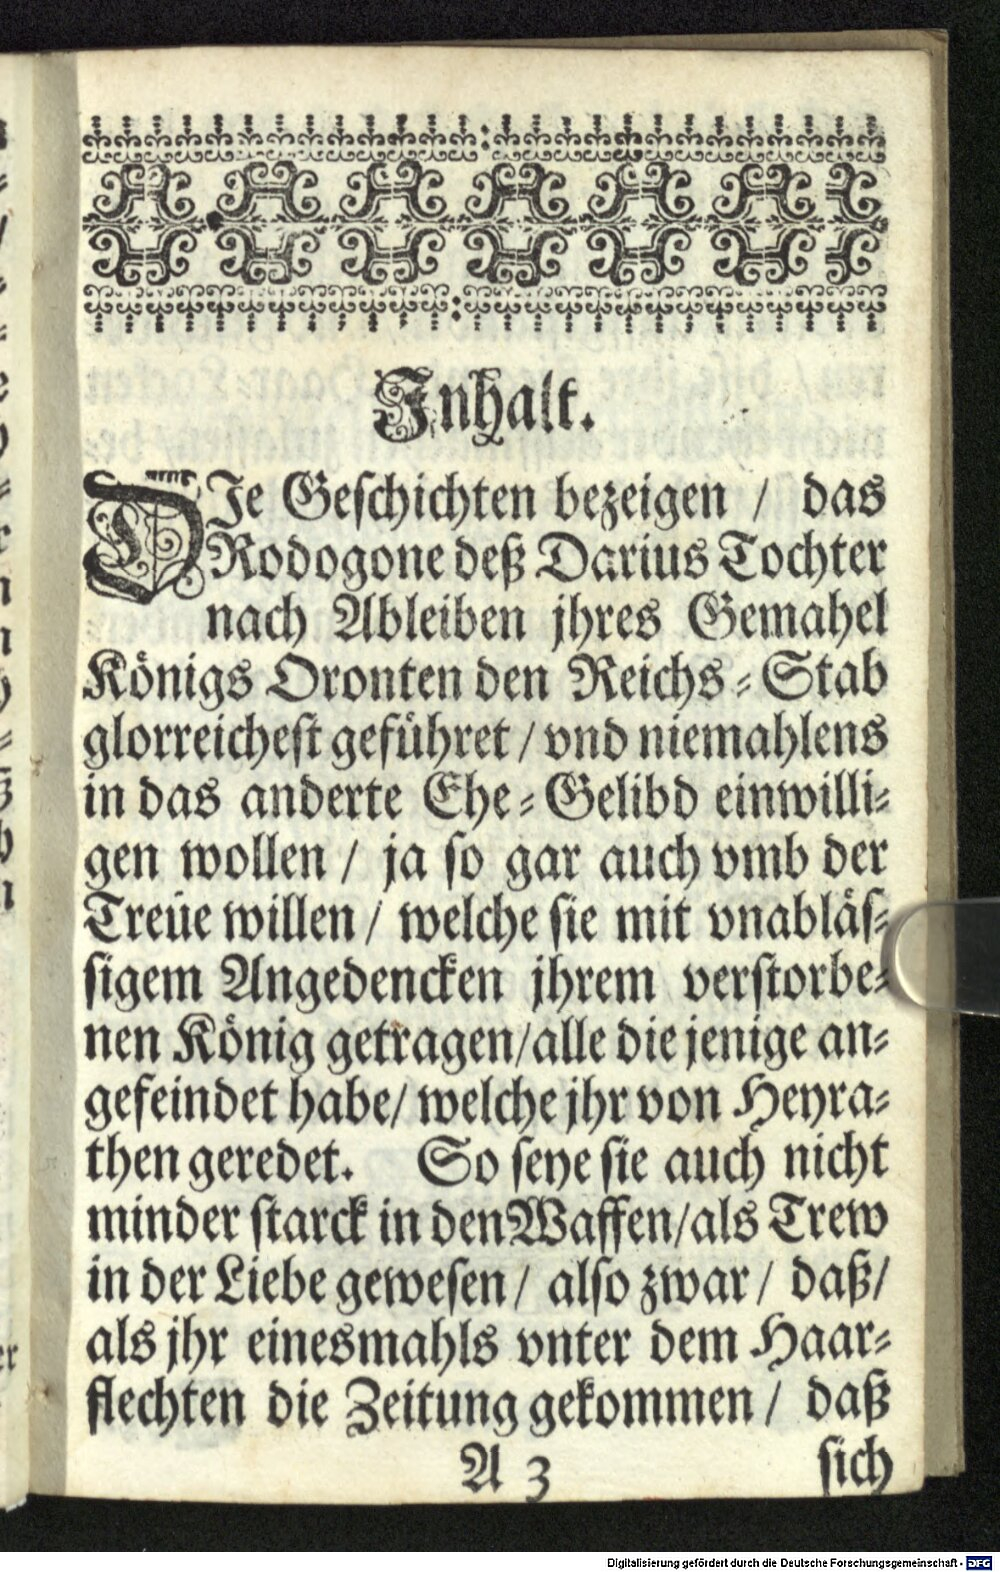 Jnhalt.
DJe Geschichten bezeigen / das
Rodogone deß Darius Tochter
nach Ableiben jhres Gemahel
Königs Oronten den Reichs-Stab
glorreichest geführet / vnd niemahlens
in das anderte Ehe-Gelibd einwilli-
gen wollen / ja so gar auch vmb der
Treüe willen / welche sie mit vnabläs-
sigem Angedencken jhrem verstorbe-
nen König getragen/alle die jenige an-
gefeindet habe/ welche jhr von Heyra-
then geredet. So seye sie auch nicht
minder starck in den Waffen/als Trew
in der Liebe gewesen / also zwar / daß/
als jhr einesmahls vnter dem Haar-
flechten die Zeitung gekommen / daß
A 3 sich
Digitalisierung gefördert durch die Deutsche Forschungsgemeinschaft - DFG